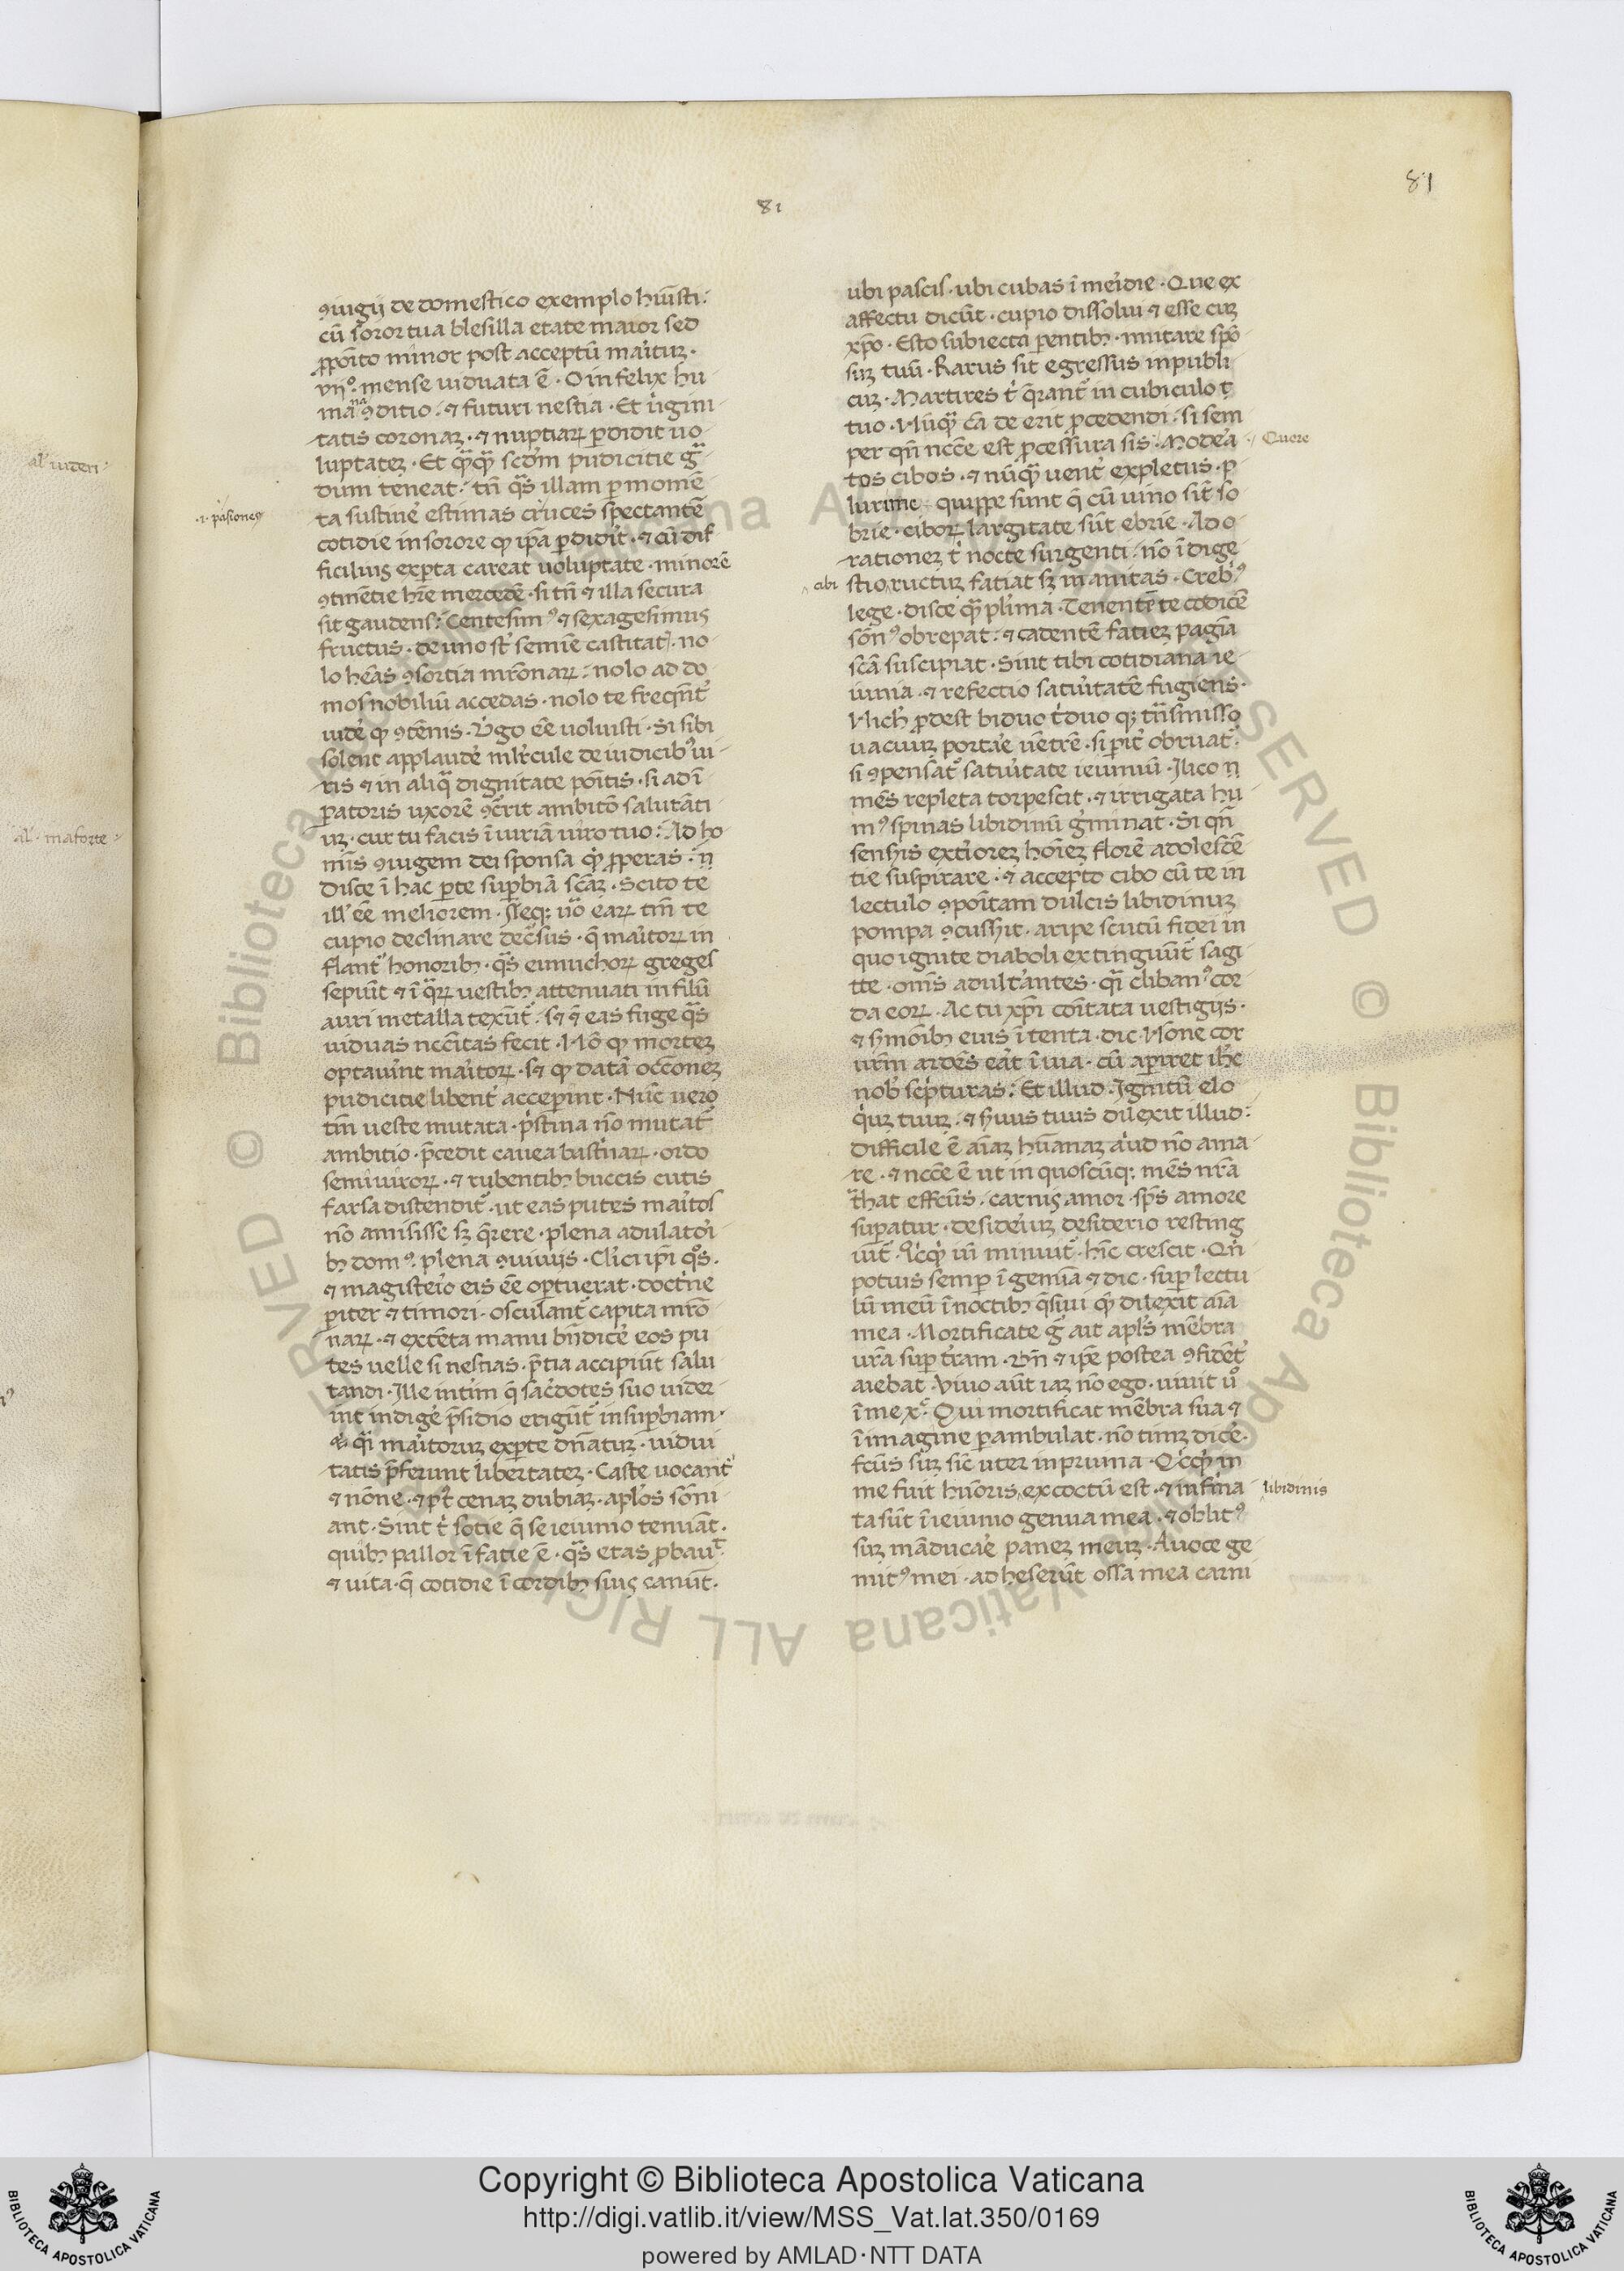 81
81
ꝯiugij de domestico exemplo hũisti:
cũ soror tua blesilla etate maior sed
ꝓpõito minor post acceptũ maritũ·
vijº mense uiduata ẽ · O infelix hu
mana ꝯditio · ⁊ futuri nescia · Et ũigini
tatis coronaʒ · ⁊ nuptiaꝝ ꝑdidit uo
luptateʒ · Et qꝫqꝫ scd̃m pudicitie g̃
dum teneat · tñ q̃s illam ꝑ momẽ
ta sustinẽ estimas cruces spectantẽ
cotidie in sorore qꝫ ip̃a ꝑdidit · ⁊ cũ dif
ficilius exꝑta careat uoluptate · minorẽ
ꝯtinẽtie hr̃e mercedẽ · si tñ ⁊ illa secura
sit gaudens: Centesimꝰ ⁊ sexagesimus
fructus · de uno st̃ semĩe castitatꝭ · no
lo heãs ꝯsortia mr̃onaꝝ · nolo ad do
mos nobiliũ accedas · nolo te freqñt̃
uidẽ qꝫ ꝯtẽnis · Ũgo eẽ uoluisti · Si sibi
solent applaudẽ ml̃rcule de iudicibꝰ ui
ris ⁊ in aliq̃ dignitate põitis · si ad ĩ
ꝑatoris uxorẽ ꝯc̃rit ambitõ salutãti
uʒ · cur tu facis ĩiuriã uiro tuo: Ad ho
mĩs ꝯiugem dei sponsa qꝫ ꝓperas · ñ
disce ĩ hac ꝑte suꝑbiã scãʒ · Scito te
ill' eẽ meliorem · Neqꝫ ũo eaꝝ tm̃ te
cupio declinare dec̃sus · q̃ maritoꝝ in
flant̃ honoribꝫ · q̃s eunuchoꝝ greges
sepiũt ⁊ ĩ q̃ꝝ uestibꝫ attenuati in filũ
auri metalla texũt̃ · sꝫ ⁊ eas fuge q̃s
uiduas nccĩtas fecit · Nõ qꝫ morteʒ
optauĩnt maritoꝝ · sꝫ qꝫ datã occõneʒ
pudicitie libent̃ acceperint · Nũc uero
tm̃ ueste mutata · p̃stina nõ mutat̃
ambitio · p̃cedit cauea bastñaꝝ · ordo
semiuiroꝝ · ⁊ rubentibꝫ buccis cutis
farsa distendit̃ · ut eas putes maritos
nõ amisisse sꝫ q̃rere · plena adulatoĩ
bꝫ domꝰ · plena ꝯuiuijs · Cl̃ici ip̃i q̃s·
⁊ magisterio eis eẽ oꝑtuerat · doct̃ne
ꝑiter ⁊ timori · osculant̃ capita mr̃o
naꝝ · ⁊ extẽta manu bñdicẽ eos pu
tes uelle si nescias · p̃tia accipiũt salu
tandi · Ille intim̃ q̃ sac̃dotes suo uider
int indigẽ p̃sidio erigũt̃ in suꝑbiam ·
⁊ q̃ maritoruʒ exꝑte dñatuʒ · uidui
tatis p̃ferunt libertateʒ · Caste uocant̃
⁊ nõne · ⁊ pꝰt cenaʒ dubiaʒ · apl'os sõni
ant · Sint t̃ socie q̃ se ieiunio tenuãt ·
quibꝫ pallor ĩ facie ẽ · q̃s etas ꝓbauͭ ·
⁊ uita · q̃ cotidie ĩ cordibꝫ suis canũt ·
·i· pasiones
al' uideri
al' maforte
ubi pascis · ubi cubas ĩ merĩdie · Que ex
affectu dicũt · cupio dissolui ⁊ esse cuʒ
xp̃o · Esto subiecta ꝑentibꝫ · imitare spõ
suʒ tuũ · Rarus sit egressus in publi
cuʒ · Martires t̃ q̃rant̃ in cubiculo
tuo · Nũqꝫ cã de erit ꝓcedendi · si sem
per qñ ncc̃e est ꝓcessura sis · Modeã
tos cibos · ⁊ nũqꝫ uent̃ expletus · p
lurime quippe sunt q̃ cũ uino sĩt so
brie · ciboꝝ largitate sũt ebrie · Ad o
rationeʒ t̃ nocte surgenti · nõ ĩdige
stio ructuʒ fatiat sꝫ inanitas · Crebꝰ
lege · disce qꝫ pl'ima · Tenenti te codicẽ
sõnꝰ obrepat · ⁊ cadentẽ fatieʒ pagĩa
scã suscipiat · Sint tibi cotidiana ie
iunia · ⁊ refectio satuĩtatẽ fugiens ·
Nich' ꝓdest biduo t̃duo qꝫ tñsmisso
uacuuʒ portare ũetrẽ · si ꝑit̃ obruat̃·
si ꝯpensat̃ satuĩtate ieiuniũ · Ilico
mẽs repleta torpescit · ⁊ irrigata hu
mꝰ spinas libidinũ g̃minat · Si qñ
senseis exteriorẽʒ hoĩeʒ florẽ adolescẽ
tie suspirare · ⁊ accepto cibo cũ te in
lectulo ꝯpoĩtam dulcis libidinuʒ
pompa ꝯcusserit · aripe scutũ fidei in
quo ignite diaboli extinguũt̃ sagi
tte · omĩs adult̃antes · qꝫ clibanꝰ cor
da eoꝝ · Ac tu xp̃i comĩtata uestigijs ·
⁊ sermõibꝫ eius ĩtenta · dic · Nõne cor
ur̃m ardẽs erat ĩ uia · cũ apiret ih̃c
nob' sc̃pturas: Et illud · Ignitũ elo
quiʒ tuuʒ · ⁊ seruus tuus dilexit illud:
Difficile ẽ aĩaʒ hũanaʒ aliud nõ ama
re · ⁊ ncc̃e ẽ ut in quoscũqꝫ mẽs nr̃a
t̃hat̃ effcũs · carnis amor · sp̃s amore
suꝑatur · desideriuʒ desiderio resting
uit̃ · Qicqꝫ iñ minuit̃ · hĩc crescit · Qñ
potuis semꝑ ĩgemĩa ⁊ dic · suꝑ lectu
lũ meũ ĩ noctibꝫ q̃siui qꝫ dilexit aĩa
mea · Mortificate g̃ ait apl's mẽbra
ur̃a suꝑ t̃ram · Uñ ⁊ ip̃e postea ꝯfidẽt̃
aiebat · Viuo aũt iaʒ nõ ego · uiuit ũo
ĩ me x̃c · Qui mortificat mẽbra sua ⁊
ĩ imagine ꝑambulat · nõ timʒ dicẽ·
fcũs suʒ sic uter in pruina · Qicqꝫ in
me fuit hũoris excoctũ est · ⁊ infirma
ta sũt ĩ ieiunio genua mea · ⁊ oblitꝰ
suʒ mãducare paneʒ meuʒ · A uoce ge
mitꝰ mei · adheserũt ossa mea carni
cibi
libidinis
© Biblioteca Apostolica Vaticana ALL RIGHTS RESERVED
Copyright © Biblioteca Apostolica Vaticana
http://digi.vatlib.it/view/MSS_Vat.lat.350/0169
powered by AMLAD·NTT DATA
BIBLIOTECA APOSTOLICA VATICANA
BIBLIOTECA APOSTOLICA VATICANA